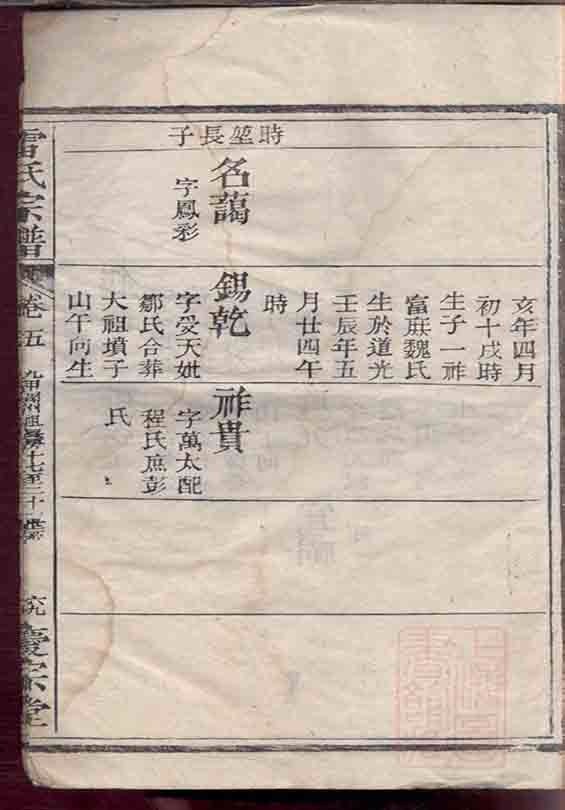 時堃長子
名藹
字鳳彩
亥年四月
初十戌時
生子一祚
富庶魏氏
生於道光
壬辰年五
月廿四午
時
錫乾
字受天妣
鄒氏合葬
大祖墳子
山午向生
祚貴
字萬太配
程氏庶彭
氏
雷氏宗譜
卷五
慶宗堂